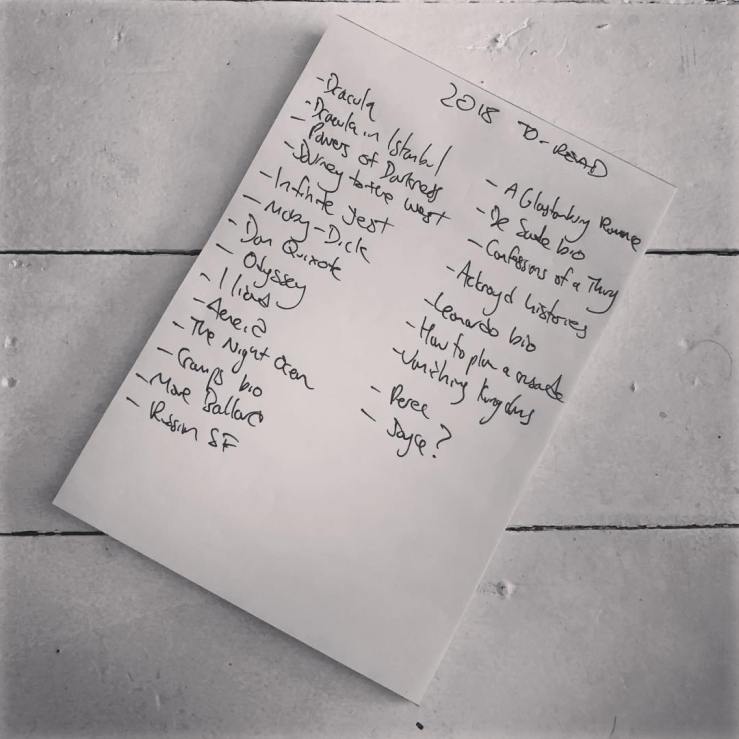 2018 TO-READ
- Dracula
- Dracula in Istanbul
- Powers of Darkness
- Journey to the West
- Infinite Jest
- Moby-Dick
- Don Quixote
- Odyssey
- Iliad
- Aeneid
- The Night Ocean
- Cramps bio
- More Ballard
- Russian SF
- A Glastonbury Romance
- De Sade bio
- Confessions of a Thug
- Ackroyd histories
- Leonardo bio
- How to plan a crusade
- Vanishing Kingdoms
- Perec
- Joyce?